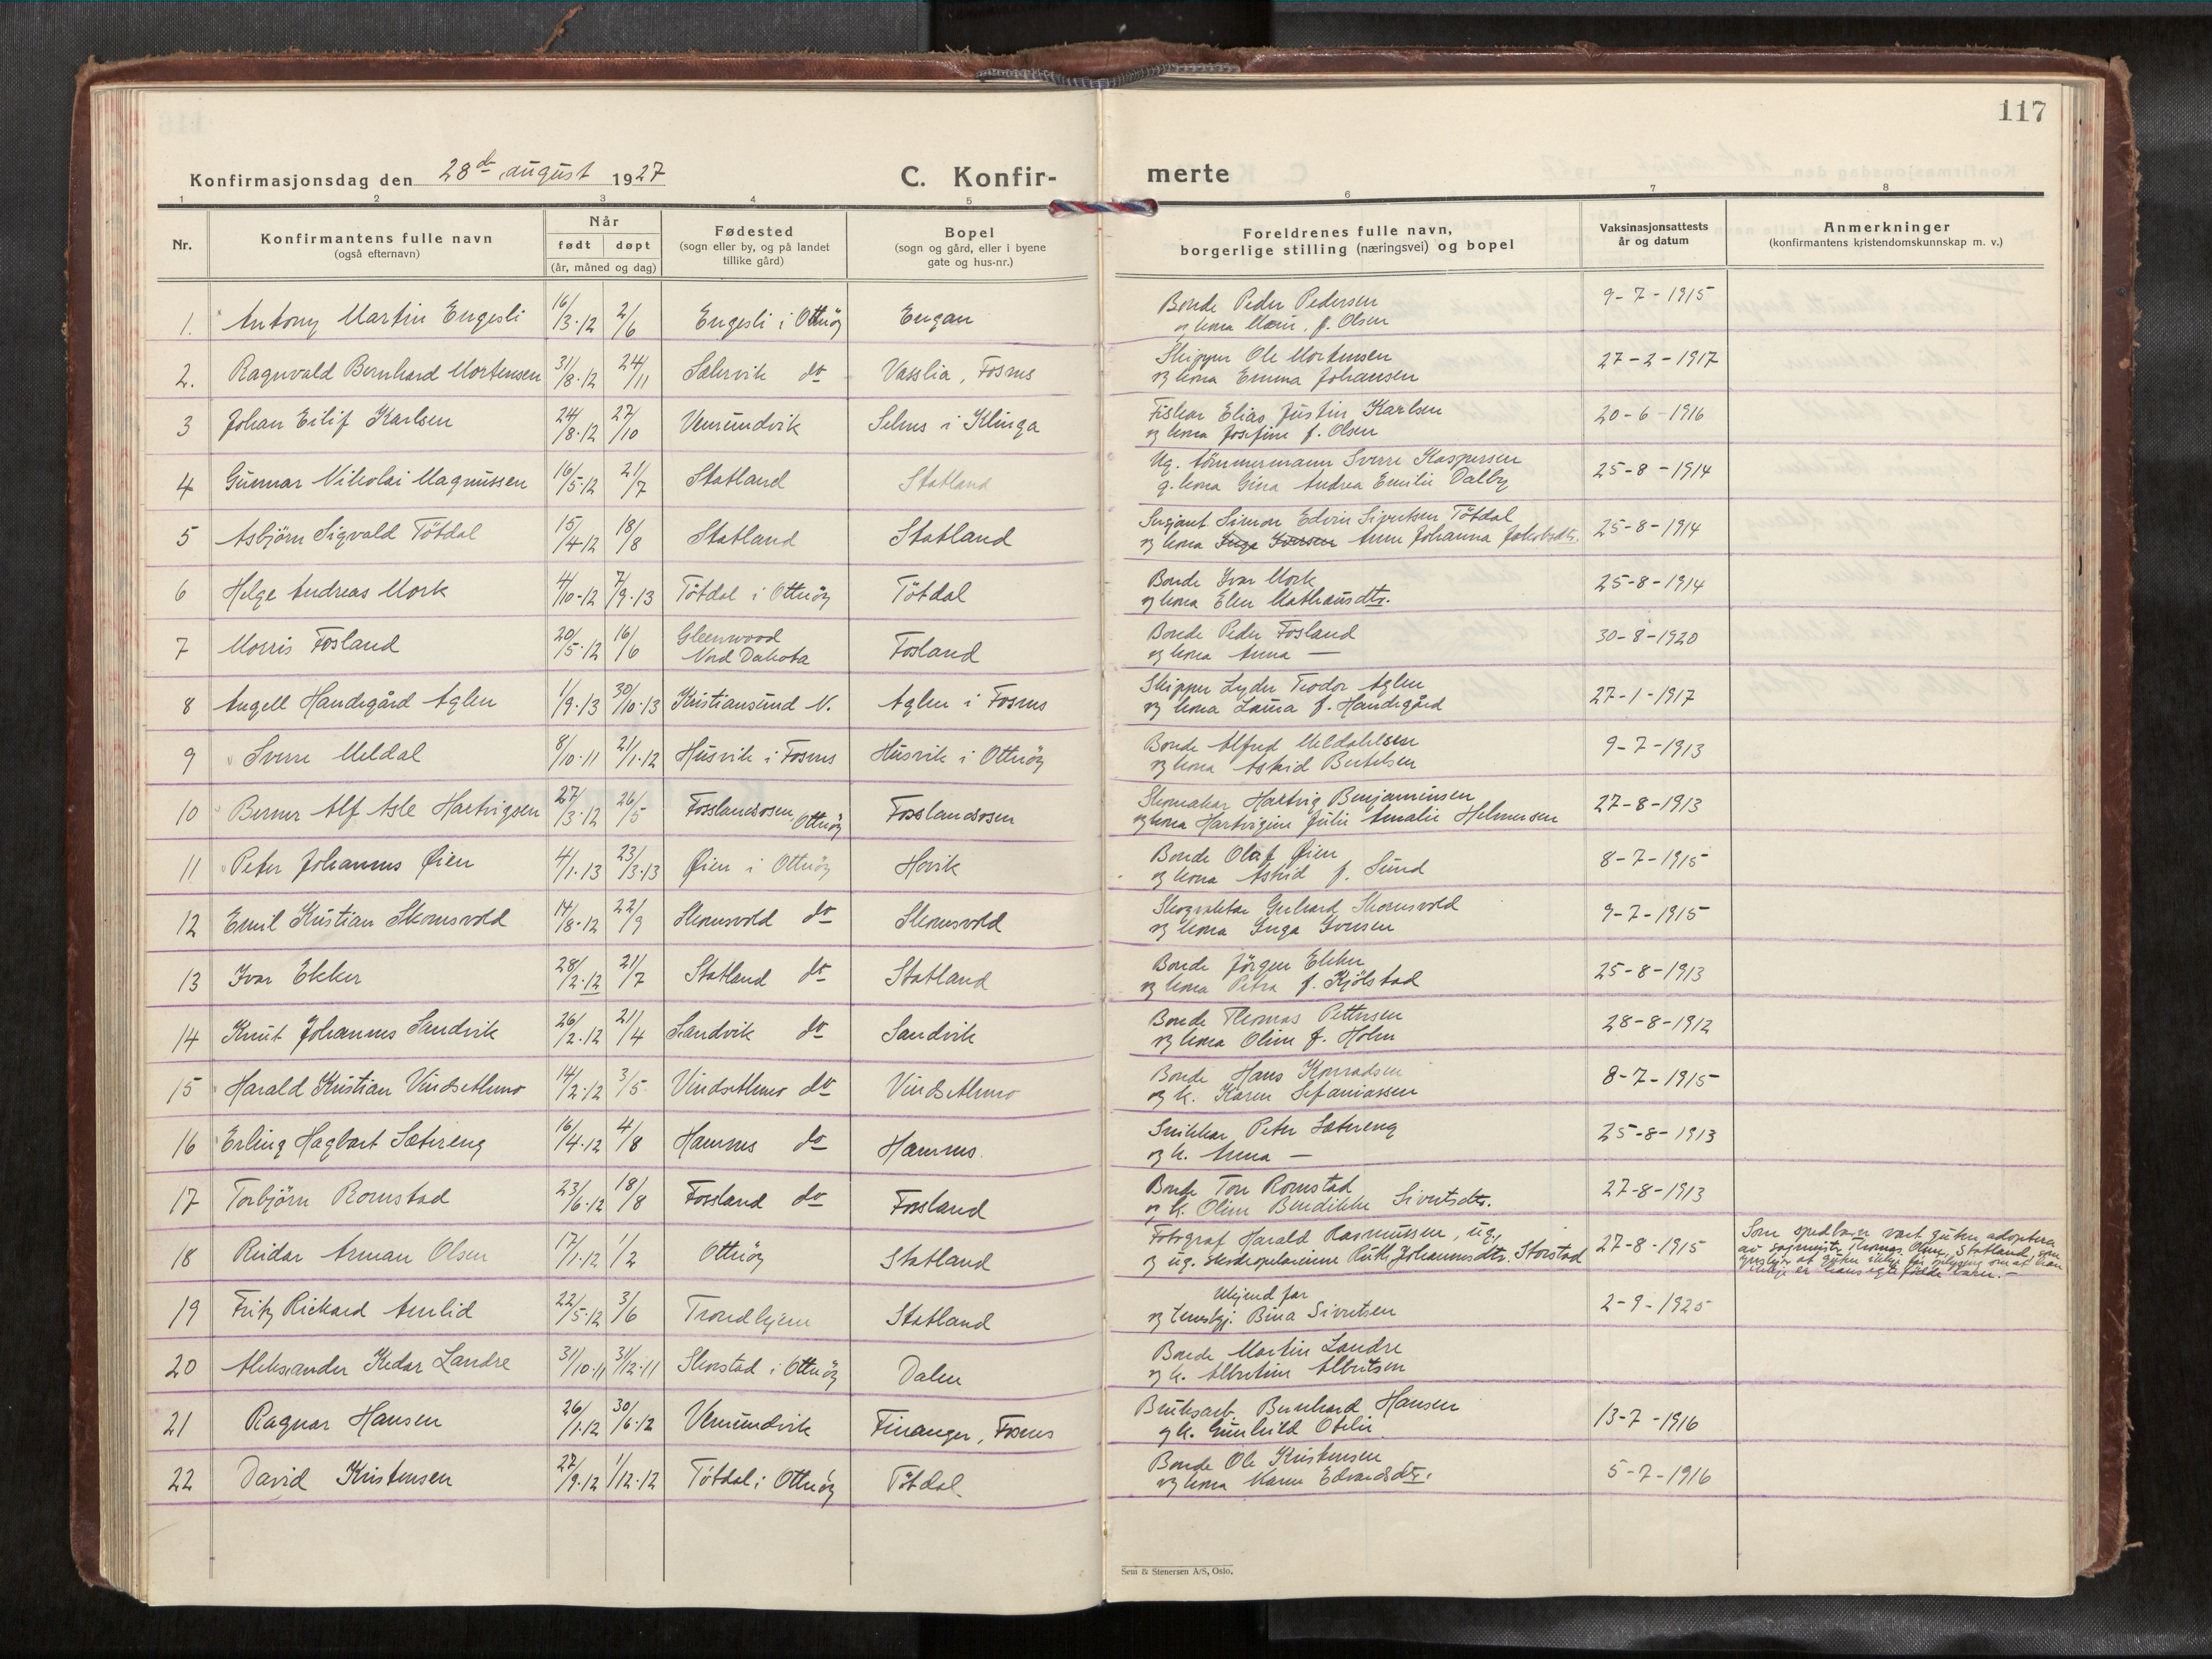 117
Konfirmasjonsdag den 28de august 1927
C. Konfir-merte
1 2 3 4 5 6 7 8
Nr.
Konfirmantens fulle navn
(også efternavn)
Når
født døpt
(år, måned og dag)
Fødested
(sogn eller by, og på landet
tillike gård)
Bopel
(sogn og gård, eller i byene
gate og hus-nr.)
Foreldrenes fulle navn,
borgerlige stilling (næringsvei) og bopel
Vaksinasjonsattests
år og datum
Anmerkninger
(konfirmantens kristendomskunnskap m. v.)
1. Antony Martin Engesli 16/3·12 2/6 Engesli i Otterøy Engan Bonde Peder Pedersen 9-7-1915
og kona Marie, f. Olsen
2. Ragnvald Bernhard Mortensen 31/8·12 24/11 Sælervik do Vasslia, Fosnes Skipper Ole Mortensen 27-2-1917
og kona Emma Johansen
3 Johan Eilif Karlsen 24/8·12 27/10 Vemundvik Selnes i Klinga Fiskar Elias Justin Karlsen 20-6-1916
og kona Josefine f. Olsen
4 Gunnar Nikolai Magnussen 16/5·12 21/7 Statland Statland Ug. tömmermann Sverre Kaspersen 25-8-1914
g. kona Gina Andrea Emilie Dalby
5 Asbjörn Sigvald Tötdal 15/4·12 18/8 Statland Statland Sersjant Simon Edvin Sivertsen Tötdal 25-8-1914
og kona Inga Iversen Anne Johanna Jakobsdtr.
6 Helge Andreas Mork 4/10·12 7/9·13 Tötdal i Otteröy Tötdal Bonde Ivar Mork 25-8-1914
og kona Elen Mathausdtr.
7 Morris Fosland 20/5·12 16/6 Gleenwood Nord Dakota Fosland Bonde Peder Fosland 30-8-1920
og kona Anna —
8 Angell Handegård Aglen 1/9·13 30/10·13 Kristiansund N. Aglen i Fosnes Skipper Lyder Teodor Aglen 27-1-1917
og kona Laura f. Handegård
9 Sverre Meldal 8/10·11 21/1·12 Husvik i Fosnes Husvik i Otteröy Bonde Alfred Meldahlsen 9-7-1913
og kona Astrid Bertelsen
10 Berner Alf Asle Hartvigsen 27/3·12 26/5 Fosslandsosen Otteröy Fosslandsosen Skomakar Hartvig Benjaminsen 27-8-1913
og kona Hartvigine Julie Amalie Helmersen
11 Peter Johannes Øien 4/1·13 23/3·13 Øien i Otteröy Hovik Bonde Olaf Øien 8-7-1915
og kona Astrid f. Sund
12 Emil Kristian Skomsvold 14/8·12 22/9 Skomsvold do Skomsvold Skogvaktar Gerhard Skomsvold 9-7-1915
og kona Inga Iversen
13 Ivar Ekker 28/2·12 21/7 Statland do Statland Bonde Jörgen Ekker 25-8-1913
og kona Petra f. Kjölstad
14 Knut Johannes Sandvik 26/2·12 21/4 Sandvik do Sandvik Bonde Thomas Pettersen 28-8-1912
og kona Oline f. Holm
15 Harald Kristian Vindsethmo 14/2·12 3/5 Vindsethmo do Vindsethmo Bonde Hans Konradsen 8-7-1915
og k. Karen Sefaniassen
16 Erling Hagbart Sætereng 16/4·12 4/8 Hamnes do Hamnes. Snikkar Peter Sætereng 25-8-1913
og k. Anna —
17 Torbjörn Romstad 23/6·12 18/8 Fossland do Fossland Bonde Tore Romstad 27-8-1913
og k. Oline Bendikke Sivertsdtr.
18 Reidar Arman Olsen 17/1·12 1/2 Otteröy Statland Fotograf Harald Rasmussen, ug., 27-8-1915
og ug. Ruth Johannesdtr. Storstad
Som spedbarn vart guten adoptera
av sagmeistr Thomas Olsen, Statland, som
ynskjer at guten ikkje får om at han
ikkje er hans egtefödde barn. —
19 Fritz Rickard Amlid 22/5·12 3/6 Trondhjem Statland Ukjend far 2-9-1925
og tenestgj. Bina Sivertsen
20 Aleksander Kedar Landre 31/10·11 31/12·11 Skorstad i Otteröy Dalen Bonde Martin Landre
og k. Albertine Albertsen
21 Ragnar Hansen 26/1·12 30/6·12 Vemundvik Finanger, Fosnes Bruksarb. Bernhard Hansen 13-7-1916
og k. Gunhild Otelie
22 David Kristensen 27/9·12 1/12·12 Tötdal i Otteröy Tötdal Bonde Ole Kristensen 5-7-1916
og kona Karen Edvardsdtr.
Sem & Stenersen A/S, Oslo.